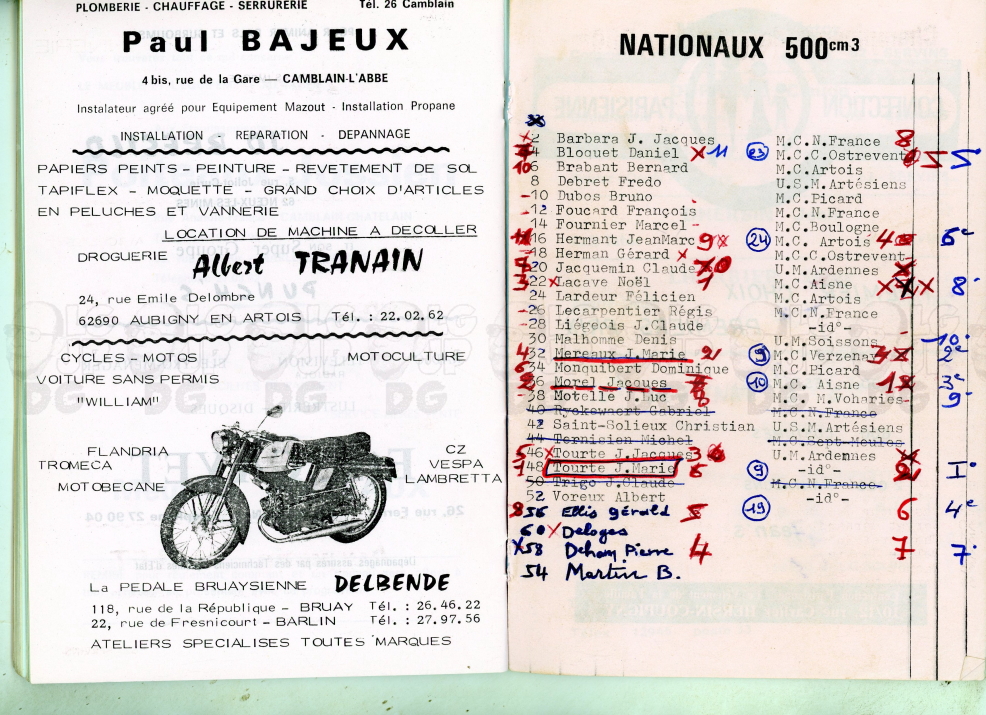 PLOMBERIE - CHAUFFAGE - SERRURERIE Tél. 26 Camblain
Paul BAJEUX
4 bis, rue de la Gare — CAMBLAIN-L'ABBE
Instalateur agréé pour Equipement Mazout - Installation Propane
INSTALLATION - REPARATION - DEPANNAGE
PAPIERS PEINTS - PEINTURE - REVETEMENT DE SOL
TAPIFLEX - MOQUETTE - GRAND CHOIX D'ARTICLES
EN PELUCHES ET VANNERIE
LOCATION DE MACHINE A DECOLLER
DROGUERIE Albert TRANAIN
24, rue Emile Delombre
62690 AUBIGNY EN ARTOIS Tél. : 22.02.62
CYCLES - MOTOS MOTOCULTURE
VOITURE SANS PERMIS
"WILLIAM"
FLANDRIA CZ
TROMECA VESPA
MOTOBECANE LAMBRETTA
La PEDALE BRUAYSIENNE DELBENDE
118, rue de la République - BRUAY Tél. : 26.46.22
22, rue de Fresnicourt - BARLIN Tél. : 27.97.56
ATELIERS SPECIALISES TOUTES MARQUES
NATIONAUX 500cm3
2 Barbara J. Jacques M.C.N.France 8
4 Bloquet Daniel X 11 23 M.C.C.Ostrevent 5
6 Brabant Bernard M.C.Artois
8 Debret Fredo U.S.M.Artésiens
10 Dubos Bruno M.C.Picard
12 Foucard François M.C.N.France
14 Fournier Marcel M.C.Boulogne
16 Hermant JeanMarc 9 24 M.C. Artois 4 6e
18 Herman Gérard X M.C.C.Ostrevent
20 Jacquemin Claude 10 U.M.Ardennes
22 Lacave Noël 1 M.C.Aisne 8
24 Lardeur Félicien M.C.Artois
26 Lecarpentier Régis M.C.N.France
28 Liégeois J.Claude -id°-
30 Malhomme Denis U.M.Soissons 10
32 Mereaux J.Marie 2 9 M.C.Verzenay 2e
34 Monquibert Dominique M.C.Picard
36 Morel Jacques 10 M.C. Aisne 1 3e
38 Motelle J.Luc M.C. M.Voharies 9
40 Ryckewaert Gabriel M.C.N.France
42 Saint-Solieux Christian U.S.M.Artésiens
44 Ternisien Michel M.C.Sept Meules
46 Tourte J.Jacques 3 U.M.Ardennes
48 Tourte J.Marie 9 -id°- 2 I°
50 Trigo J.Claude M.C.N.France
52 Voreux Albert -id°-
56 Ellis Gérald 5 19 6 4e
60 X Deloges
X 58 Deham Pierre 4 7 7
54 Martin B.